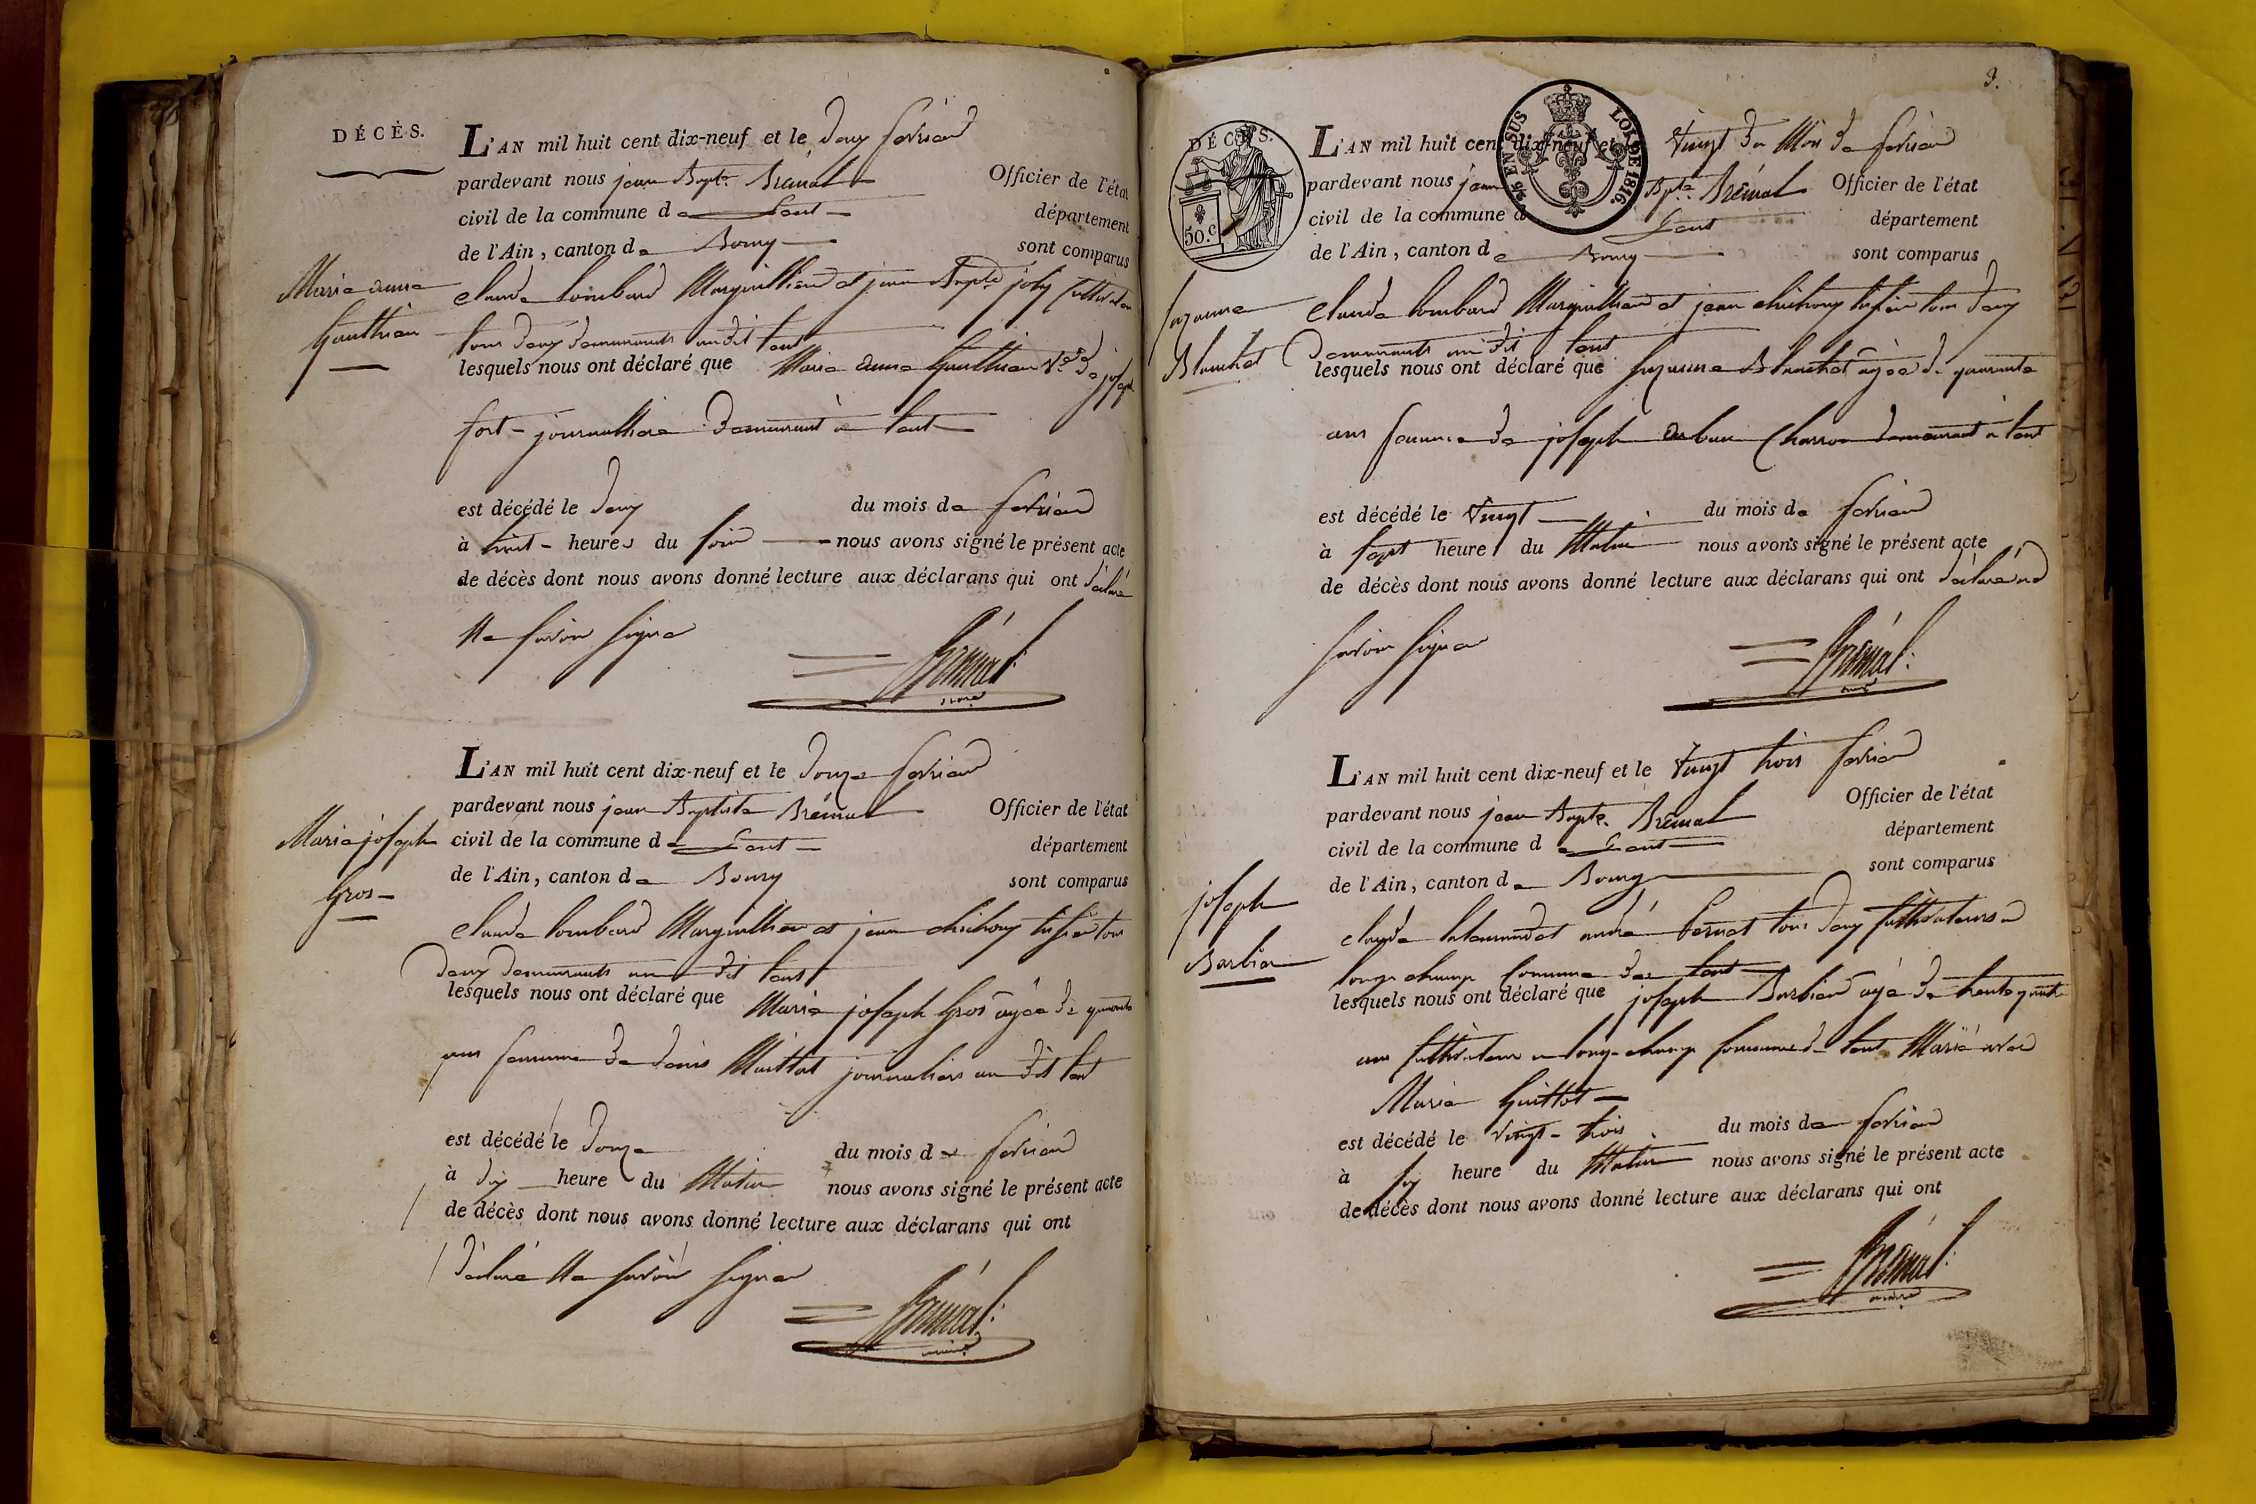 DÉCÈS.
L'AN mil huit cent dix-neuf et le deux fevrier
pardevant nous jean Bapte. Brémal Officier de l'état
civil de la commune de Lent département
de l'Ain, canton de Bourg sont comparus
Marie anne
Gauthier
claude lombard Marguillier et jean Bapte joly Cultivateur
tous deux demeurants au dit lent
lesquels nous ont déclaré que Marie anne Gauthier Ve. de joseph
fort journalliere demeurant à lent
est décédé le deux du mois de fevrier
à huit heures du soir nous avons signé le présent acte
de décès dont nous avons donné lecture aux déclarans qui ont déclaré
Ne savoir signer
Brémal
maire
L'AN mil huit cent dix-neuf et le douze fevrier
pardevant nous jean Baptiste Brémal Officier de l'état
civil de la commune de Lent département
de l'Ain, canton de Bourg sont comparus
Marie joseph
Gros
claude lombard Marguillier et jean tous
deux demeurants au dit lent
lesquels nous ont déclaré que Marie joseph Gros agée de quarante
ans femme de denis journalier au dit lent
est décédé le douze du mois de fevrier
à dix heure du Matin nous avons signé le présent acte
de décès dont nous avons donné lecture aux déclarans qui ont
déclaré Ne savoir signer
Brémal
maire
3.
DÉCÈS.
50.c
¼ EN SUS LOI DE 1816.
L'AN mil huit cent dix-neuf et vingt du Mois de fevrier
pardevant nous jean Bpte. Brémal Officier de l'état
civil de la commune d Lent département
de l'Ain, canton de Bourg sont comparus
Suzanne
Blanchet
claude lombard Marguillier et jean tous deux
demeurants au dit lent
lesquels nous ont déclaré que Suzanne Blanchet agée de quarante
ans femme de joseph Charron demeurant à lent
est décédé le vingt du mois de fevrier
à sept heure du Matin nous avons signé le présent acte
de décès dont nous avons donné lecture aux déclarans qui ont déclaré ne
savoir signer
Brémal
maire
L'AN mil huit cent dix-neuf et le vingt trois fevrier
pardevant nous jean Bapte. Brémal Officier de l'état
civil de la commune de Lent département
de l'Ain, canton de Bourg sont comparus
joseph
Barbier
claude et andré tous deux Cultivateurs a
longchamp Commune de lent
lesquels nous ont déclaré que joseph Barbier agé de trente quatre
ans Cultivateur a longchamp Commune de lent Marié avec
Marie Guillot
est décédé le vingt-trois du mois de fevrier
à six heure du Matin nous avons signé le présent acte
de décès dont nous avons donné lecture aux déclarans qui ont
Brémal
maire